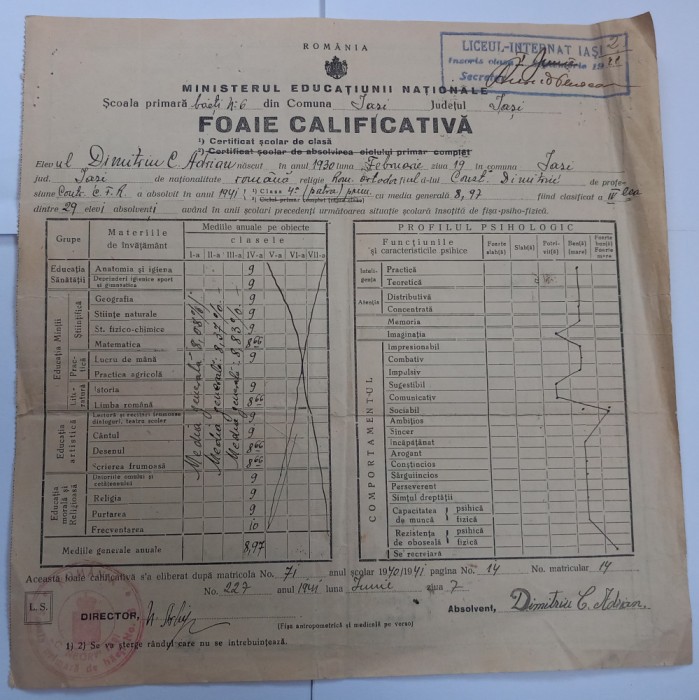 ROMÂNIA
LICEUL-INTERNAT IAȘI
2
Inscris clasa I
MINISTERUL EDUCAȚIUNII NAȚIONALE
Școala primară băeți N:6 din Comuna Iasi Județul Iași
FOAIE CALIFICATIVĂ
¹) Certificat școlar de clasă
²) Certificat școlar de absolvirea ciclului primar complet
Elevul Dimitriu C. Adrian născut in anul 1930 luna Februarie ziua 19 in comuna Iasi
jud. Iasi de naționalitate română religie Rom. ortodox fiul d-lui Const. Dimitriu de profe-
siune Cont. C.F.R. a absolvit in anul 1941 ¹) Clasa 4ª (patra) prim. cu media generală 8,97 fiind clasificat a IV lea
dintre 29 elevi absolvenți având în anii școlari precedenți următoarea situție școlară însoțită de fișa-psiho-fizică.
Grupe
Materiile de învățământ
Mediile anuale pe obiecte
clasele
I-a II-a III-a IV-a V-a VI-a VII-a
Educația Sănătății
Anatomia și igiena 9
Deprinderi igienice sport și gimnastica 9
Educația Minții
Științifică
Geografia 9
Științe naturale 9
St. fizico-chimice 9
Matematica 8 66
Practică
Lucru de mână 9
Practica agricolă
Literatură
Istoria 9
Limba română 8 66
Educația artistică
Lectură și recitări frumoase dialoguri, teatru școlar
Cântul 8 66
Desenul 8 66
Scrierea frumoasă 8
Educația morală și Religioasă
Datoriile omului și cetățeanului 9
Religia 9
Purtarea 9
Frecventarea 10
Mediile generale anuale 8,97
Media generală 8,08%
Media generală 8,37%
Media generală 8,83%
PROFILUL PSIHOLOGIC
Funcțiunile și caracteristicile psihice
Foarte slab(ă)
Slab(ă)
Potrivit(ă)
Bun(ă) (mare)
Foarte bun(ă) Foarte mare
Inteligența
Practică
Teoretică
Atenție
Distributivă
Concentrată
Memoria
Imaginația
COMPORTAMENTUL
Impresionabil
Combativ
Impulsiv
Sugestibil
Comunicativ
Sociabil
Ambițios
Sincer
Incăpăținat
Arogant
Conștincios
Sârguiincios
Perseverent
Simțul dreptății
Capacitatea de muncă psihică fizică
Rezistența de oboseală psihică fizică
Se recrejară
Această foaie calificativă s'a eliberat după matricola No. 71 anul școlar 1940/1941 pagina No. 14 Nu. matricular 14
No. 227 anul 1941 luna Iunie ziua 7
L. S.
DIRECTOR,
Absolvent, Dimitriu C. Adrian.
(Fișa antropometrică și medicală pe verso)
1) 2) Se va șterge rândul care nu se intrebuințează.